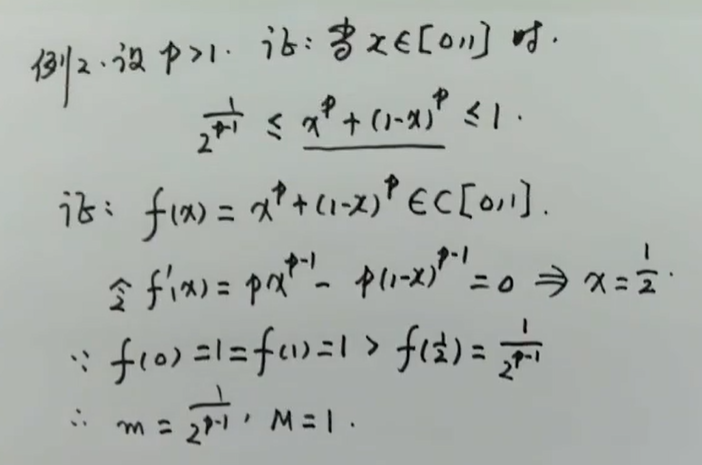 例2. 设 p>1. 证: 当 x∈[0,1] 时.
1/2^(p-1) ≤ x^p+(1-x)^p ≤ 1.
证: f(x) = x^p+(1-x)^p ∈C[0,1].
令 f'(x) = px^(p-1) - p(1-x)^(p-1) = 0 ⇒ x = 1/2.
∵ f(0) = 1 = f(1) = 1 > f(1/2) = 1/2^(p-1)
∴ m = 1/2^(p-1), M = 1.